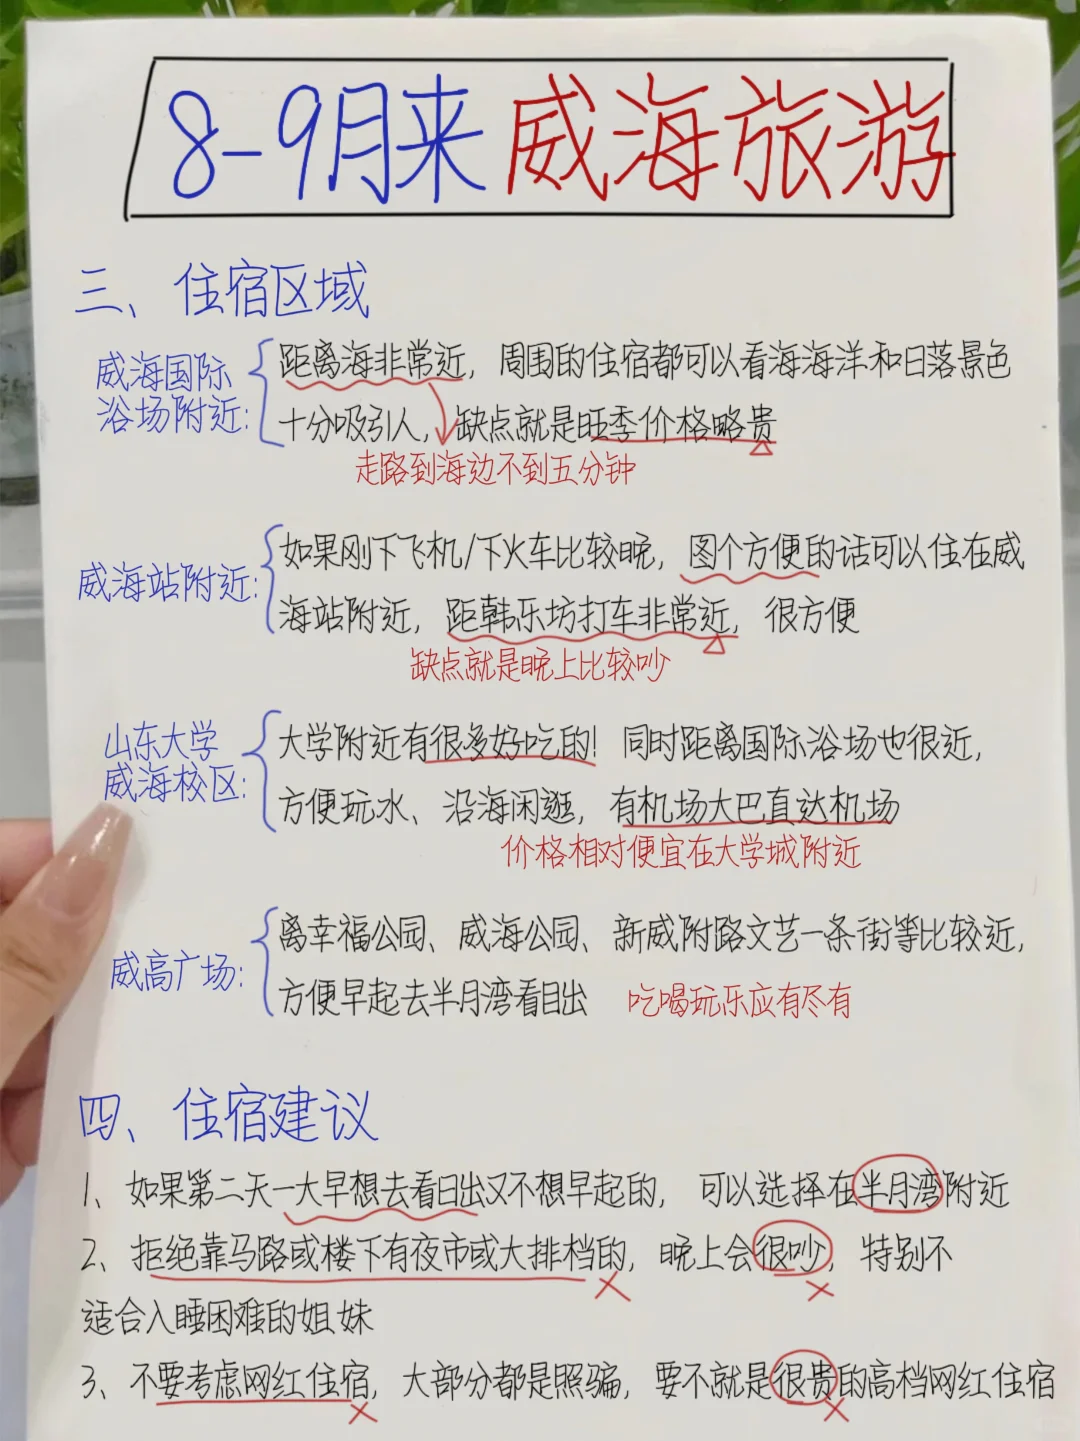 8-9月来威海旅游
三、住宿区域
威海国际
浴场附近:
距离海非常近，周围的住宿都可以看海海洋和日落景色
十分吸引人，缺点就是旺季价格略贵
走路到海边不到五分钟
威海站附近:
如果刚下飞机/下火车比较晚，图个方便的话可以住在威
海站附近，距韩乐坊打车非常近，很方便
缺点就是晚上比较吵
山东大学
威海校区:
大学附近有很多好吃的！同时距离国际浴场也很近，
方便玩水、沿海闲逛，有机场大巴直达机场
价格相对便宜在大学城附近
威高广场:
离幸福公园、威海公园、新威附路文艺一条街等比较近，
方便早起去半月湾看日出
吃喝玩乐应有尽有
四、住宿建议
1、如果第二天一大早想去看日出又不想早起的，可以选择在半月湾附近
2、拒绝靠马路或楼下有夜市或大排档的，晚上会很吵，特别不
适合入睡困难的姐妹
3、不要考虑网红住宿，大部分都是照骗，要不就是很贵的高档网红住宿